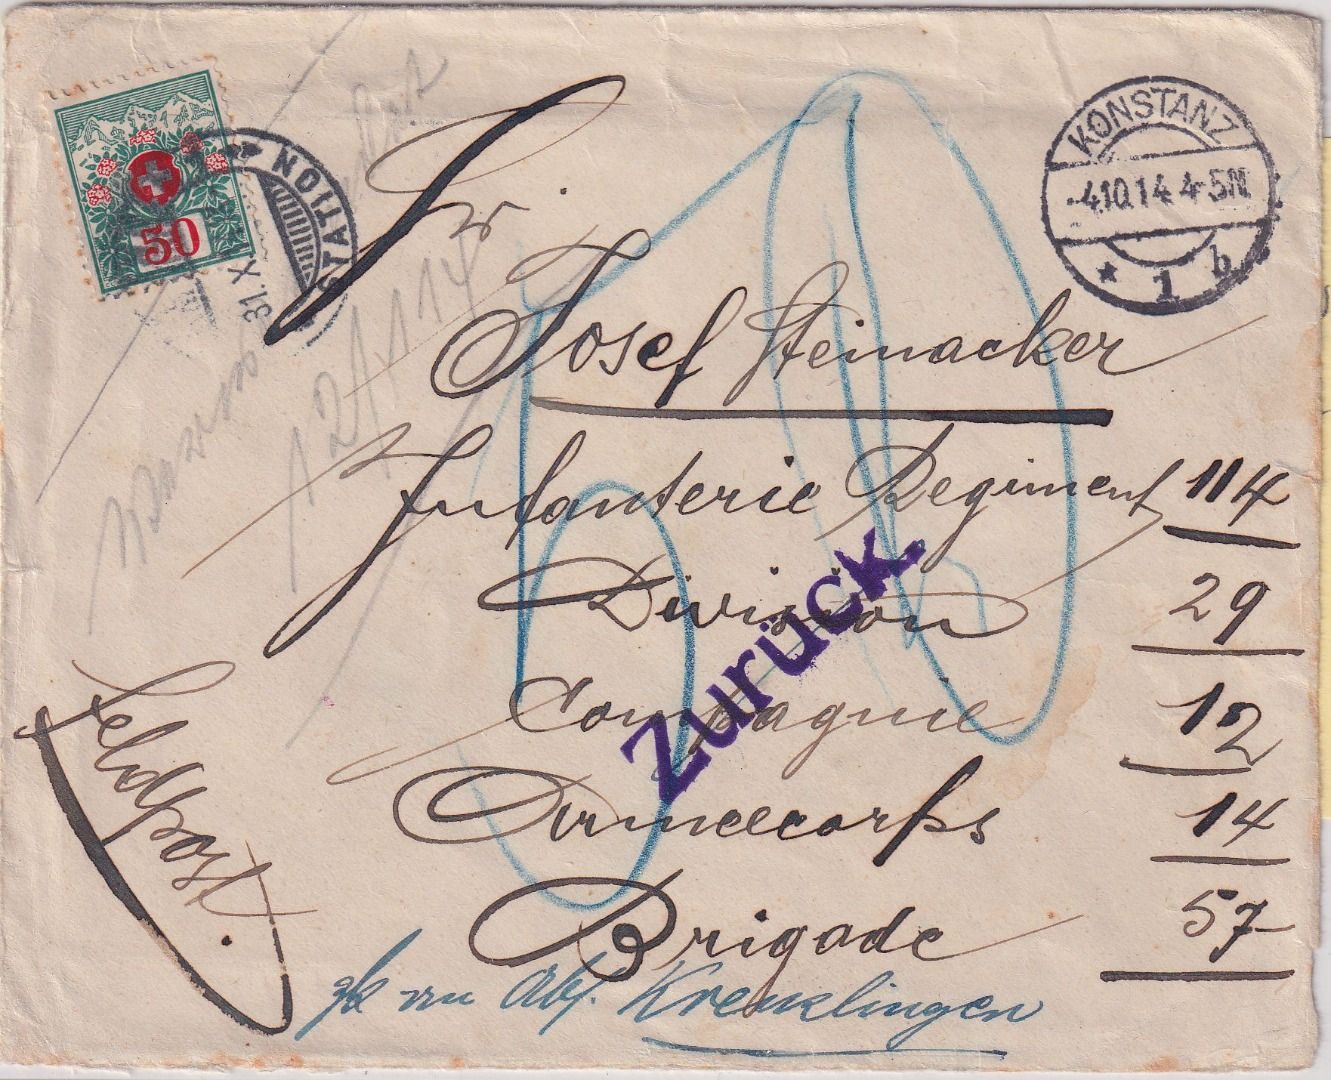 50
STATION
31.X
KONSTANZ
-4.10.14 4-5N
* 1 b
12/X 14
Josef Steinacker
Infanterie Regiment 114
Division 29
Compagnie 12
Armeecorps 14
Brigade 57
Feldpost.
Zurück.
50
zk an Abs. Kreuzlingen